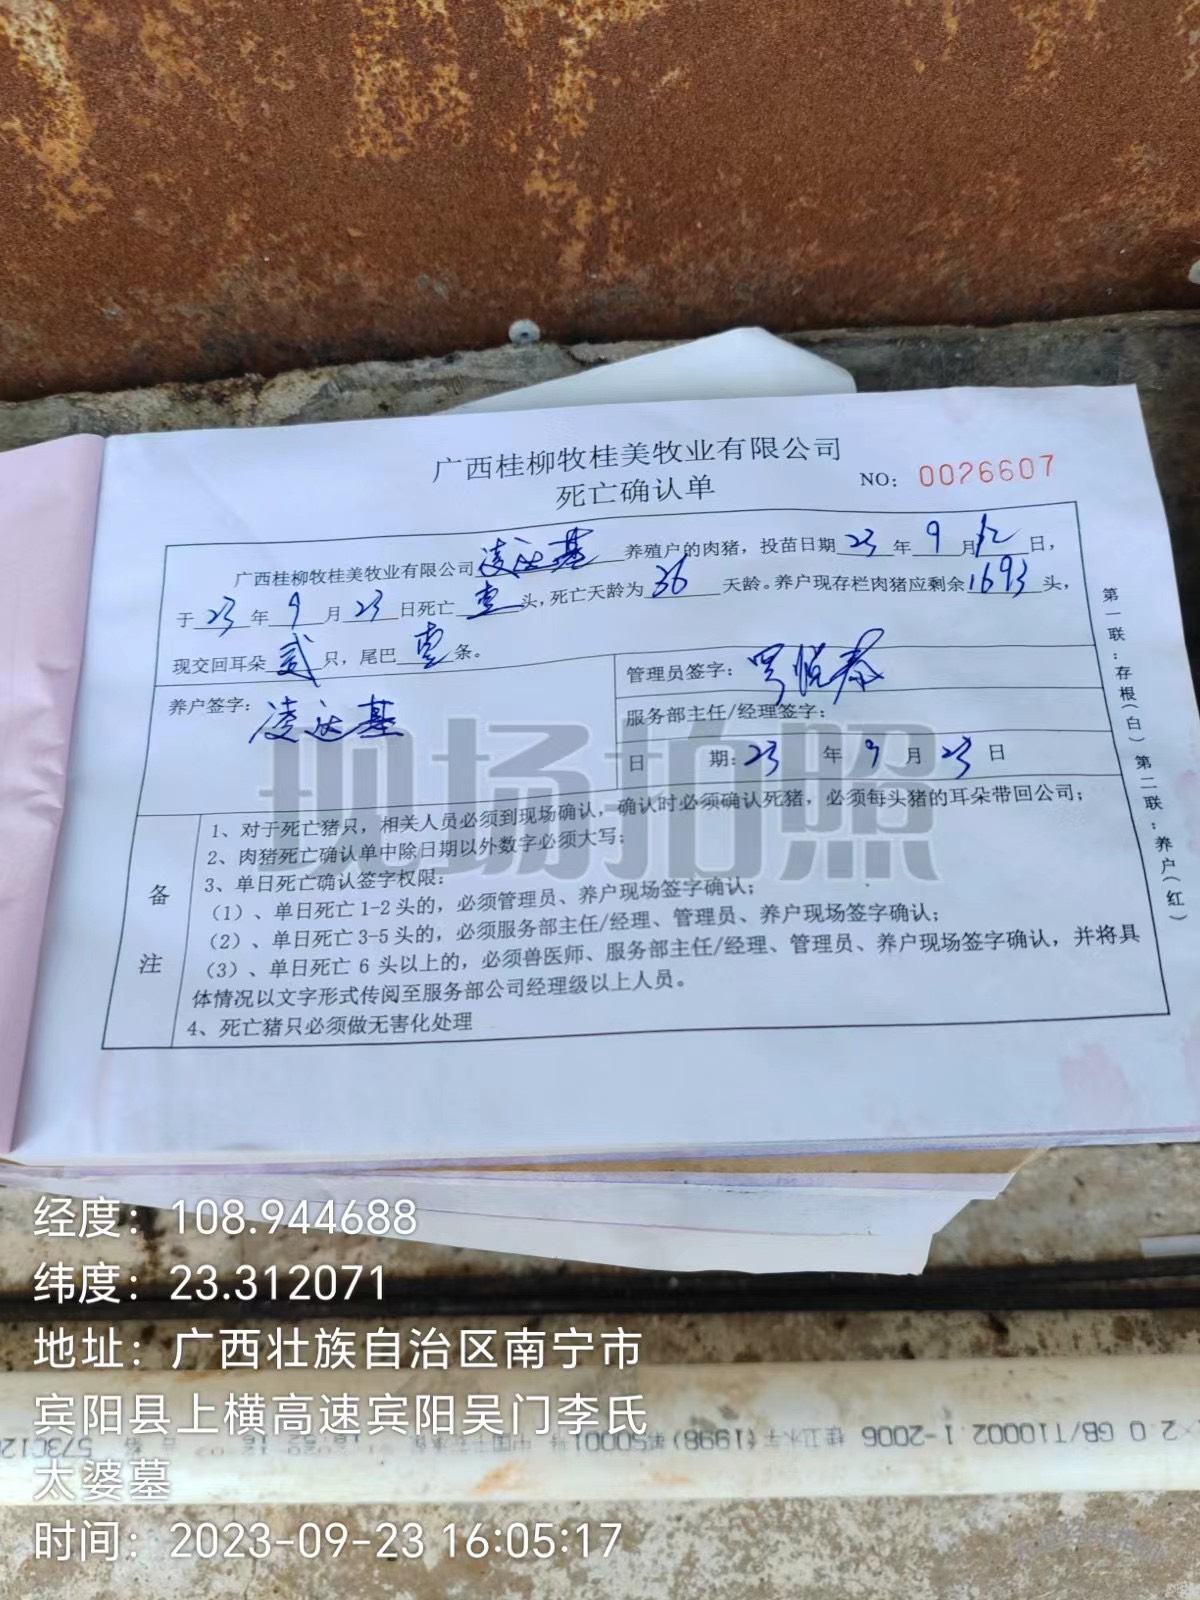 广西桂柳牧桂美牧业有限公司
死亡确认单
NO: 0026607
广西桂柳牧桂美牧业有限公司凌达基养殖户的肉猪，投苗日期23年9月12日，
于23年9月23日死亡壹头，死亡天龄为36天龄。养户现存栏肉猪应剩余1693头，
现交回耳朵贰只，尾巴壹条。
养户签字：凌达基
管理员签字：罗悦春
服务部主任/经理签字：
日期：23年9月23日
备注
1、对于死亡猪只，相关人员必须到现场确认，确认时必须确认死猪，必须每头猪的耳朵带回公司；
2、肉猪死亡确认单中除日期以外数字必须大写；
3、单日死亡确认签字权限：
（1）、单日死亡1-2头的，必须管理员、养户现场签字确认；
（2）、单日死亡3-5头的，必须服务部主任/经理、管理员、养户现场签字确认；
（3）、单日死亡6头以上的，必须兽医师、服务部主任/经理、管理员、养户现场签字确认，并将具
体情况以文字形式传阅至服务部公司经理级以上人员。
4、死亡猪只必须做无害化处理
第一联：存根（白）第二联：养户（红）
现场拍照
经度：108.944688
纬度：23.312071
地址：广西壮族自治区南宁市
宾阳县上横高速宾阳吴门李氏
太婆墓
时间：2023-09-23 16:05:17
2.0 GB/T10002.1-2006 桂卫水字(1998)第S0001号